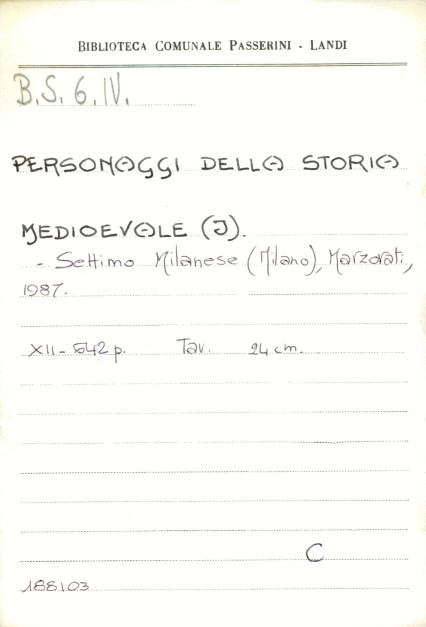 BIBLIOTECA COMUNALE PASSERINI - LANDI
B.S. 6. IV.
PERSONAGGI DELLA STORIA
MEDIOEVALE (I).
- Settimo Milanese (Milano), Marzorati,
1987.
XII- 642 p. Tav. 24 cm.
C
188103